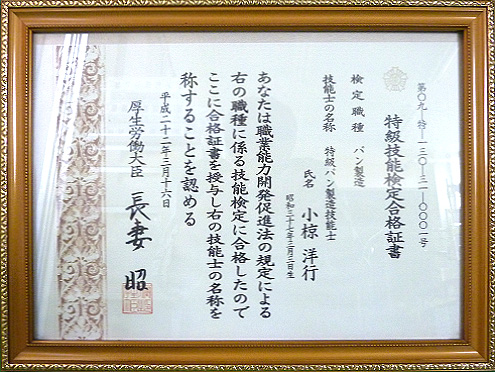 第〇九―特―一三〇―三一―〇〇〇一号
特級技能検定合格証書
検定職種 パン製造
技能士の名称 特級パン製造技能士
氏名 小椋洋行
昭和三十七年三月三日生
あなたは職業能力開発促進法の規定による
右の職種に係る技能検定に合格したので
ここに合格証書を授与し右の技能士の名称を
称することを認める
平成二十二年三月十六日
厚生労働大臣 長妻昭